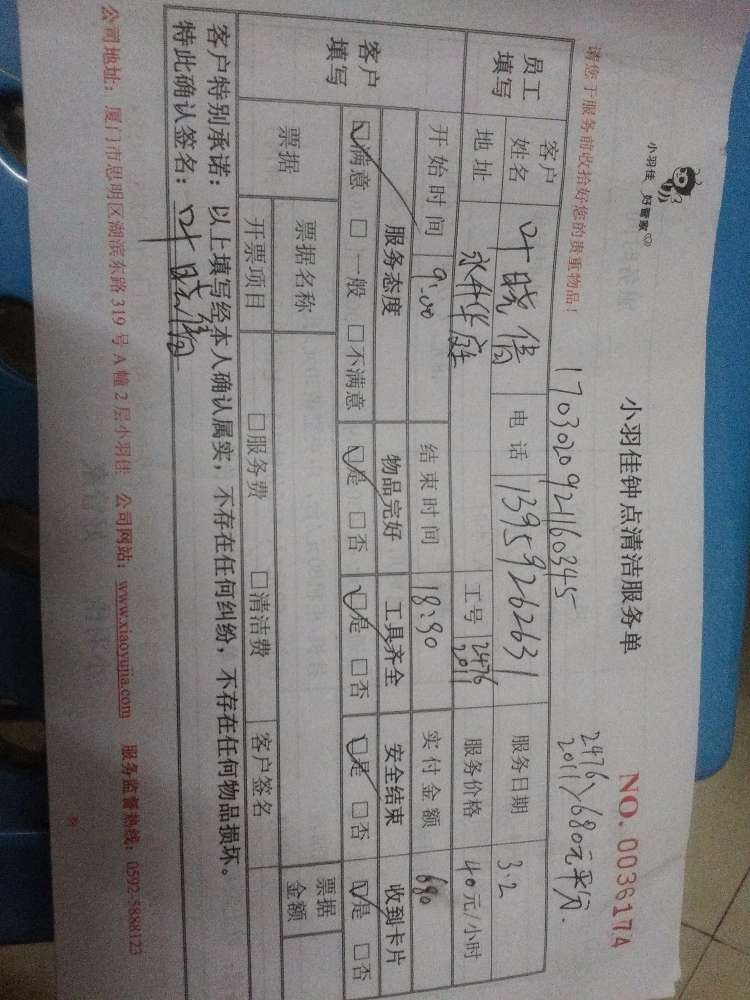 小羽佳 好管家
小羽佳钟点清洁服务单
NO. 0036174
170302092160345
2476 > 680元平分.
2011
请您于服务前收拾好您的贵重物品！
员工填写 客户姓名 叶晓倩 电话 13959262631 服务日期 3.2
地址 工号 2476 2011 服务价格 40元/小时
客户填写 开始时间 9:00 结束时间 18:30 实付金额 680
服务态度 物品完好 工具齐全 安全结束 收到卡片
☑满意 □一般 □不满意 ☑是 □否 ☑是 □否 ☑是 □否 ☑是 □否
票据 票据名称 票据金额
开票项目 □服务费 □清洁费 客户签名
客户特别承诺：以上填写经本人确认属实，不存在任何纠纷，不存在任何物品损坏。
特此确认签名：叶晓倩
公司地址：厦门市思明区湖滨东路319号A幢2层小羽佳 公司网站：www.xiaoyujia.com 服务监督热线：0592-5888123